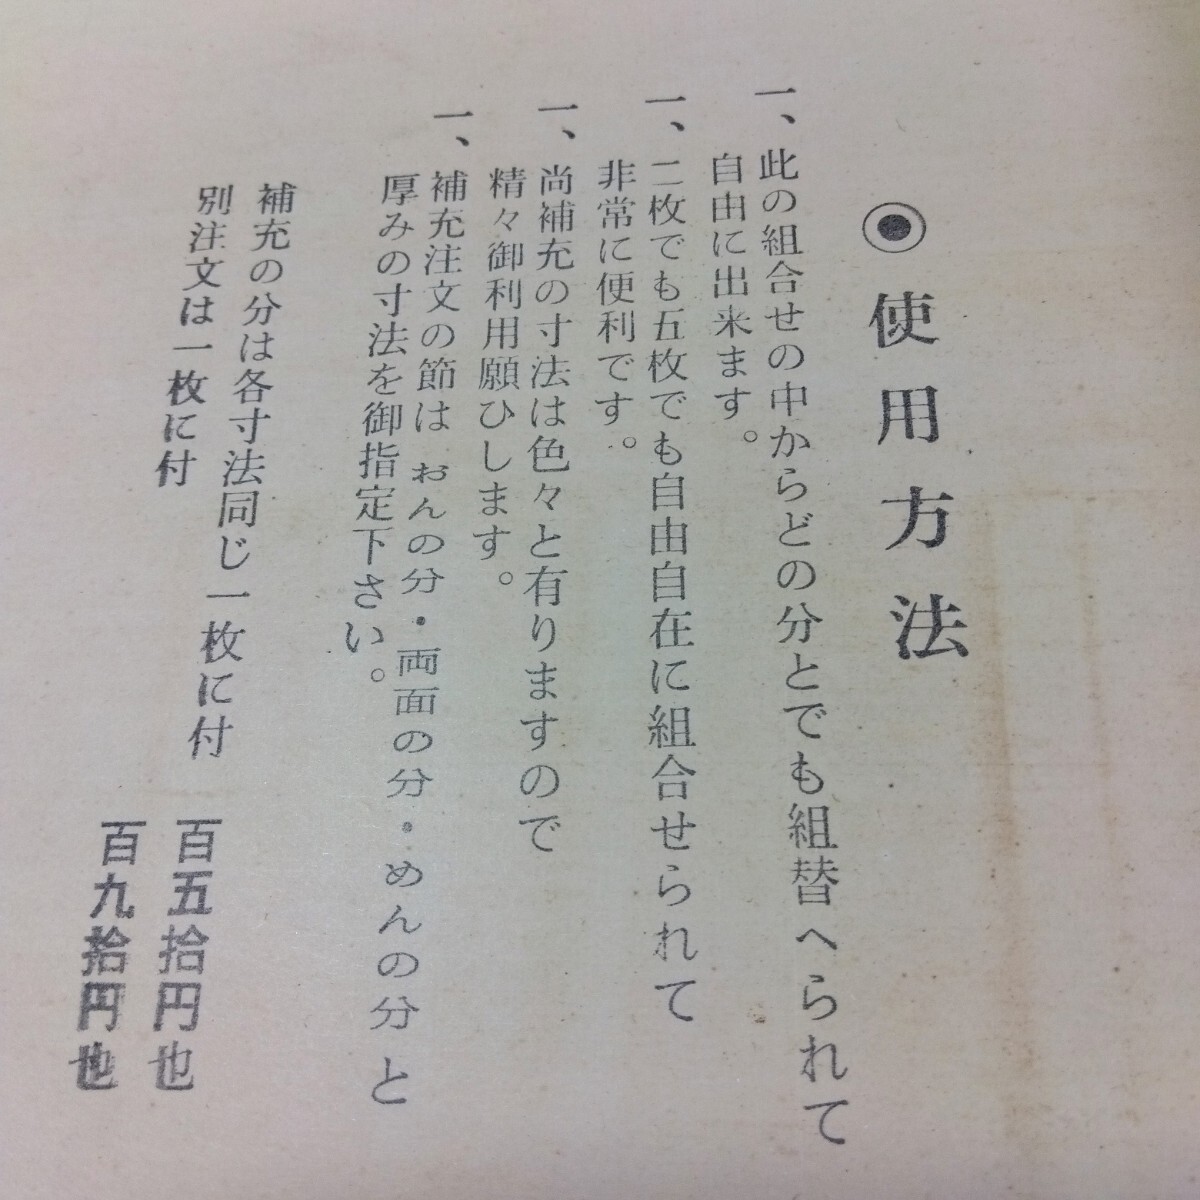 ◉使用方法
一、此の組合せの中からどの分とでも組替へられて
自由に出来ます。
一、二枚でも五枚でも自由自在に組合せられて
非常に便利です。
一、尚補充の寸法は色々と有りますので
精々御利用願ひします。
一、補充注文の節は おんの分・両面の分・めんの分 と
厚みの寸法を御指定下さい。
補充の分は各寸法同じ一枚に付 百五拾円也
別注文は一枚に付 百九拾円也